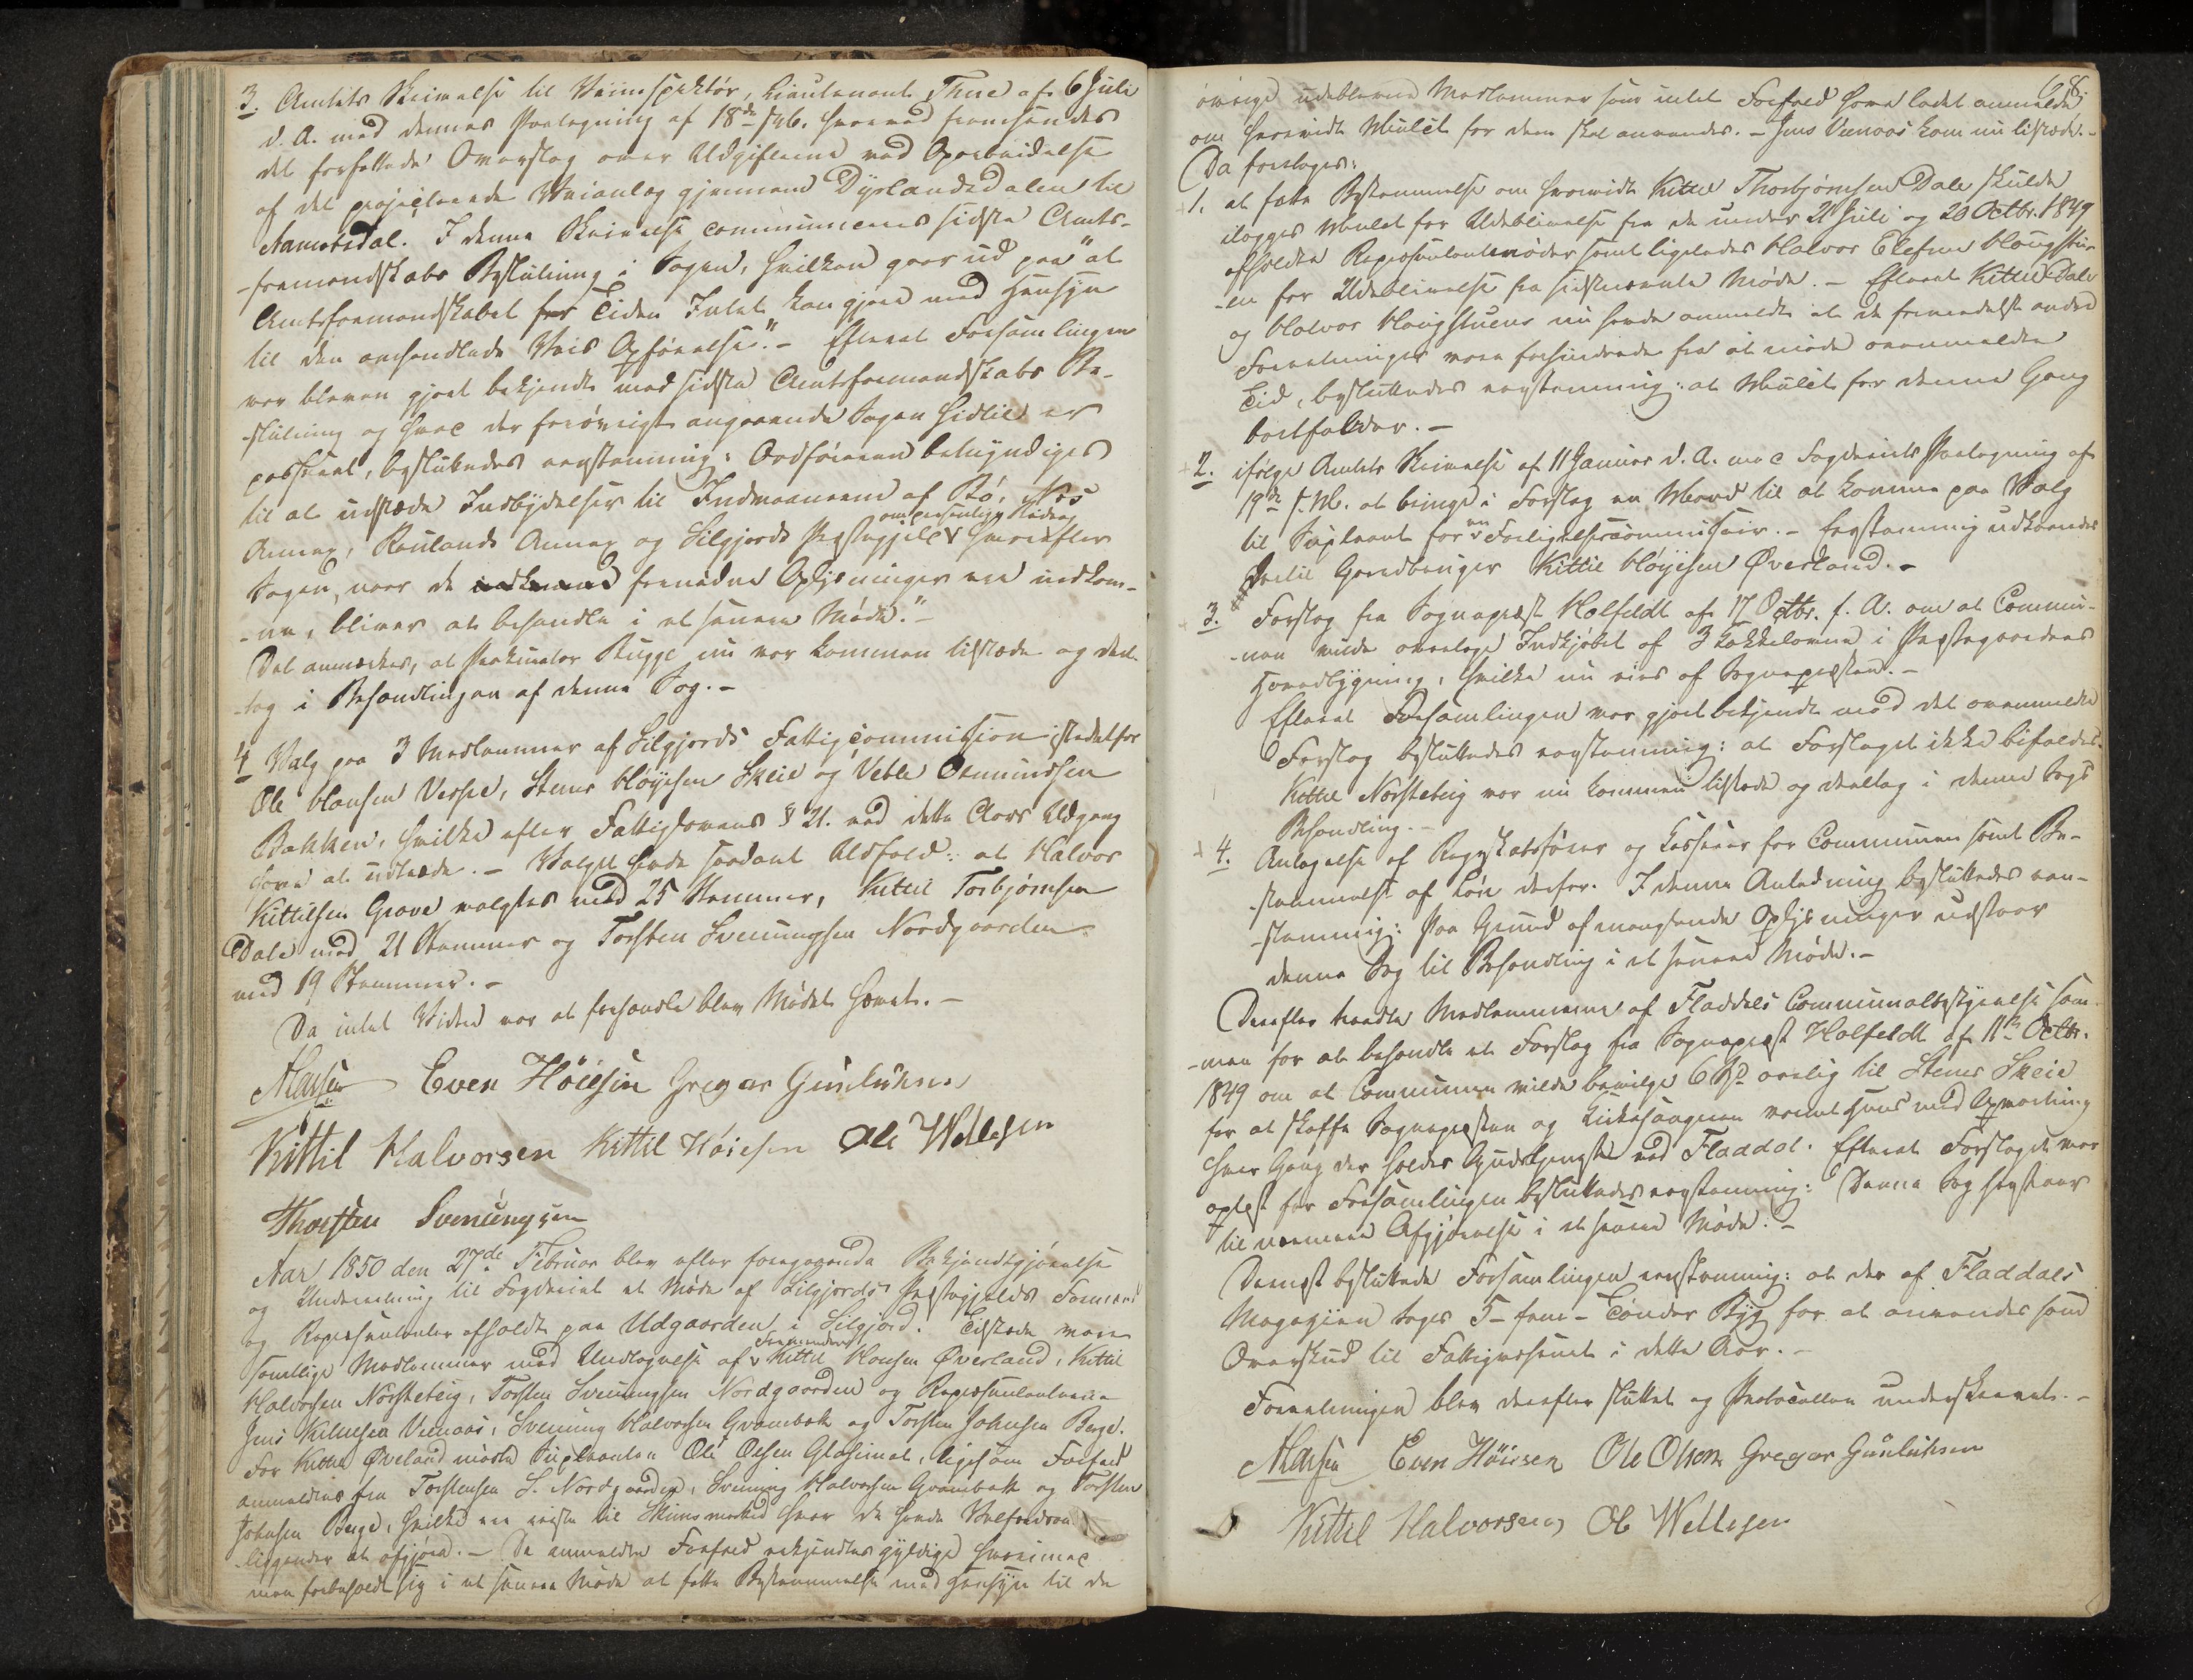 3. Amtets Skrivelse til Veiinspektør, Lieutenant Thue af 6 Juli
d. A. med dennes Paategning af 18de Feb. hvorved fremsendes
det forfattede Overslag over Udgifterne ved Oparbeidelse
af det projecterede Veianlæg gjennem Dyrlandsdalen til
Aamotsdal. I denne Skrivelse communiceres sidste Amts-
-formandskabs Beslutning i Sagen, hvilken gaar ud paa "at
Amtsformandskabet for Tiden Intet kan gjøre med Hensyn
til den omhandlede Veis Opførelse." - Efterat Forsamlingen
var bleven gjort bekjendt med sidste Amtsformandskabs Be-
-slutning og hvad der forøvrigt angaaende Sagen hidtil er
passeret, besluttedes eenstemmig: Ordføreren bemyndiges
til at udstede Indbydelser til Indvaanerne af Bø, Næs
om personlige Bidrag
Annex, Raulands Annex og Silgjords Præstegjeld v hvorefter
Sagen, naar de fornødne Oplysninger ere indkom-
-ne, bliver at behandle i et senere Møde." -
Det anmærkes, at Prokurator Rugge nu var kommen tilstede og deel-
-tog i Behandlingen af denne Sag. -
4 Valg paa 3 Medlemmer af Silgjords Fattigcommission istedetfor
Ole Hansen Vespe, Stener Høyesen Skeie og Vetle Osmundsen
Bakken, hvilke efter Fattiglovens § 21. ved dette Aars Udgang
have at udtræde. - Valget havde saadant Udfald: at Halvor
Kittilsen Grave valgtes med 25 Stemmer, Kittil Torbjørnsen
Dale med 21 Stemmer og Torsten Svenungsen Nordgaarden
med 19 Stemmer. -
Da intet Videre var at forhandle blev Mødet hævet. -
Even Høiesen Gregar Gunluksen
Kittil Halvorsen Kittil Høiesen Ole Wetlesen
Thorsten Svenungsen
Aar 1850 den 27de Februar blev efter foregaaende Bekjendtgjørelse
og Underretning til Fogderiet et Møde af Silgjords Præstegjelds Formænd
og Repræsentanter afholdt paa Udgaarden i Silgjord. Tilstede vare
Formændene
samtlige Medlemmer med Undtagelse af v Kittil Hansen Øverland, Kittil
Halvorsen Norsteteig, Torsten Svenungsen Nordgaarden og Repræsentanterne
Jens Kittilsen Vennaas, Svenung Halvorsen Qvambæk og Torsten Johnsen Berge.
For Kittil Øverland mødte Supleanten Ole Olsen Glosimot, ligesom Forfald
anmeldtes fra Torstensen S. Nordgaarden, Svenung Halvorsen Qvambæk og Torsten
Johnsen Berge, hvilke ere reiste til Skiensmarked hvor de havde Velfærdsan-
-liggender at afgjøre. - De anmeldte Forfald erkjendtes gyldige hvorimod
man forbeholdt sig i et senere Møde at fatte Bestemmelse med Hensyn til de
68.
øvrige udeblevne Medlemmer som intet Forfald have ladet anmelde
om hvorvidt Mulct for dem skal anvendes. - Jens Vennaas kom nu tilstede. -
Da foretoges:
1. at fatte Bestemmelse om hvorvidt Kittil Thorbjørnsen Dale skulde
ilægges Mulct for Udeblivelse fra de under 21 Juli og 20 Octbr. 1849
afholdte Repræsentantmøder samt ligeledes Halvor Elefsen Haugstu-
-en for Udeblivelse fra sidstnævnte Møde. - Efterat Kittil Dale
og Halvor Haugstuen nu havde anmeldt at de formedelst andre
Forretninger vare forhindrede fra at møde ovenmeldte
Tid, besluttedes eenstemmig: at Mulct for denne Gang
bortfalder. -
2. ifølge Amtets Skrivelse af 11 Januar d. A. med Fogderiets Paategning af
19de s. M. at bringe i Forslag en Mand til at komme paa Valg
til Supleant for en Forligelsescommissair. - Eenstemmig udkaaredes
hertil Gaardbruger Kittil Høyesen Øverland. -
3. Forslag fra Sognepræst Holfeldt af 17 Octbr. f. A. om at Commu-
-nen vilde overtage Indkjøbet af 3 Kakkelovne i Præstegaardens
Hovedbygning, hvilke nu eies af Sognepræsten. -
Efterat Forsamlingen var gjort bekjendt med det ovenmeldte
Forslag besluttedes eenstemmig: at Forslaget ikke bifaldes.
Kittil Norsteteig var nu kommen tilstede og deeltog i denne Sags
Behandling. -
4. Antagelse af Regnskabsfører og Kasserer for Communen samt Be-
-stemmelse af Løn derfor. I denne Anledning besluttedes een-
-stemmig: Paa Grund af manglende Oplysninger udstaar
denne Sag til Behandling i et senere Møde. -
Derefter traadte Medlemmerne af Fladdals Communalbestyrelse sam-
-men for at behandle et Forslag fra Sognepræst Holfeldt af 11te Octbr.
1849 om at Communen vilde bevilge 6 Spd aarlig til Stener Skeie
for at skaffe Sognepræsten og Kirkesangeren varmt Huus med Opvartning
hver Gang der holdes Gudstjeneste ved Fladdal. Efterat Forslaget var
oplæst for Forsamlingen besluttedes eenstemmig: Denne Sag henstaar
til nærmere Afgjørelse i et senere Møde. -
Dernæst besluttede Forsamlingen eenstemmig: at der af Fladdals
Magazien tages 5 - fem - Tønder Byg for at anvendes som
Overskud til Fattigvæsenet i dette Aar. -
Forretningen blev derefter sluttet og Protocollen underskrevet. -
Even Höiesen Ole Olsen Gregar Gunluksen
Kittil Halvorsen Ole Wetlesen